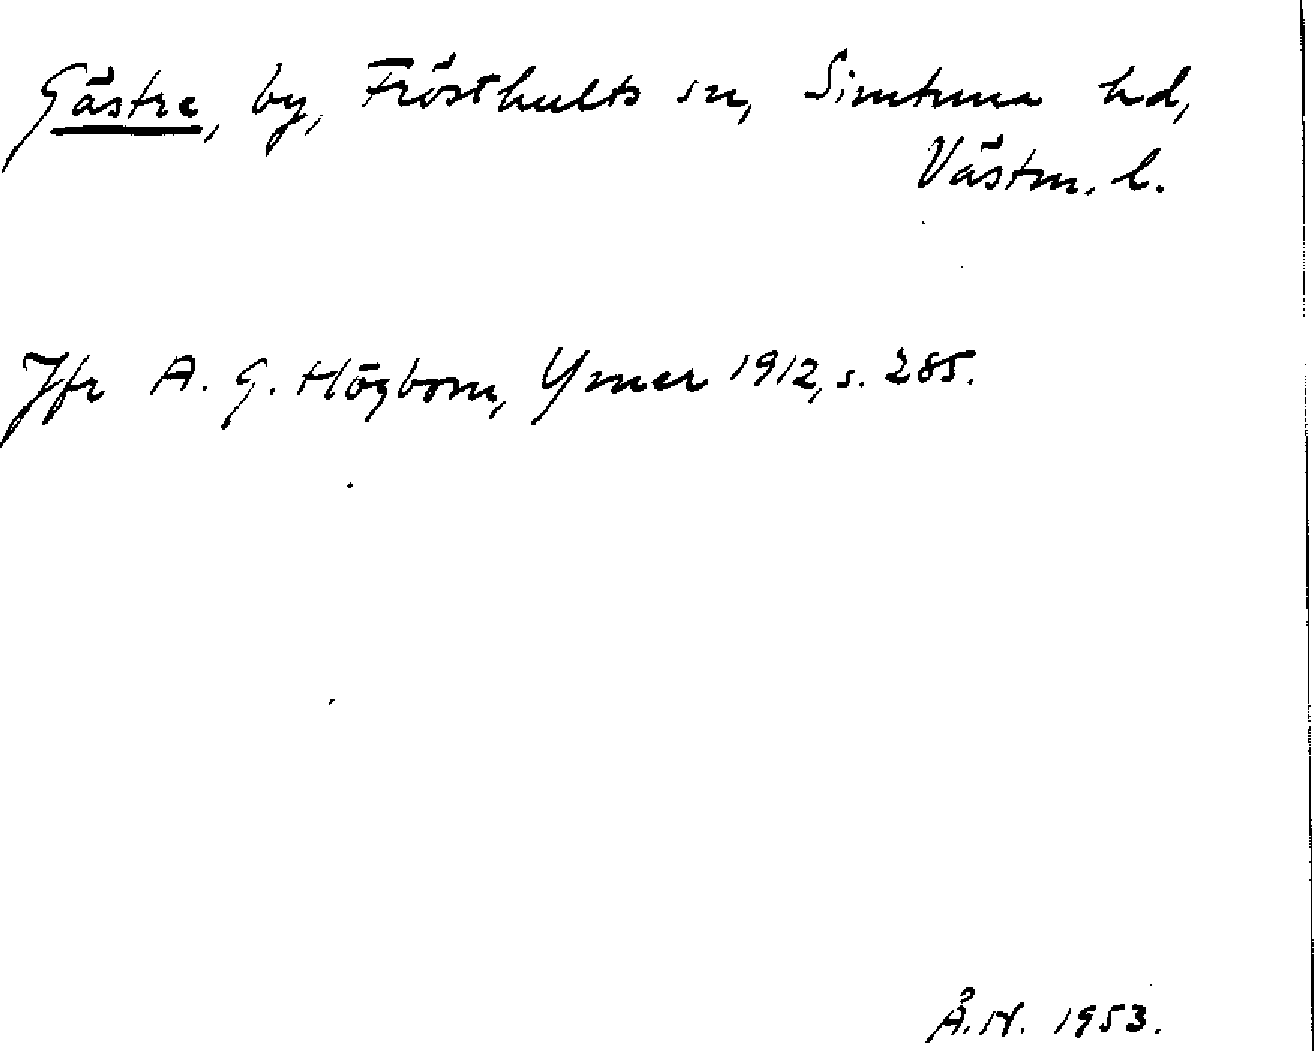 Gästre, by, Frösthults sn, Simtuna hd,
Västm. l.
Jfr A. G. Högbom, Ymer 1912, s. 285.
Å. N. 1953.